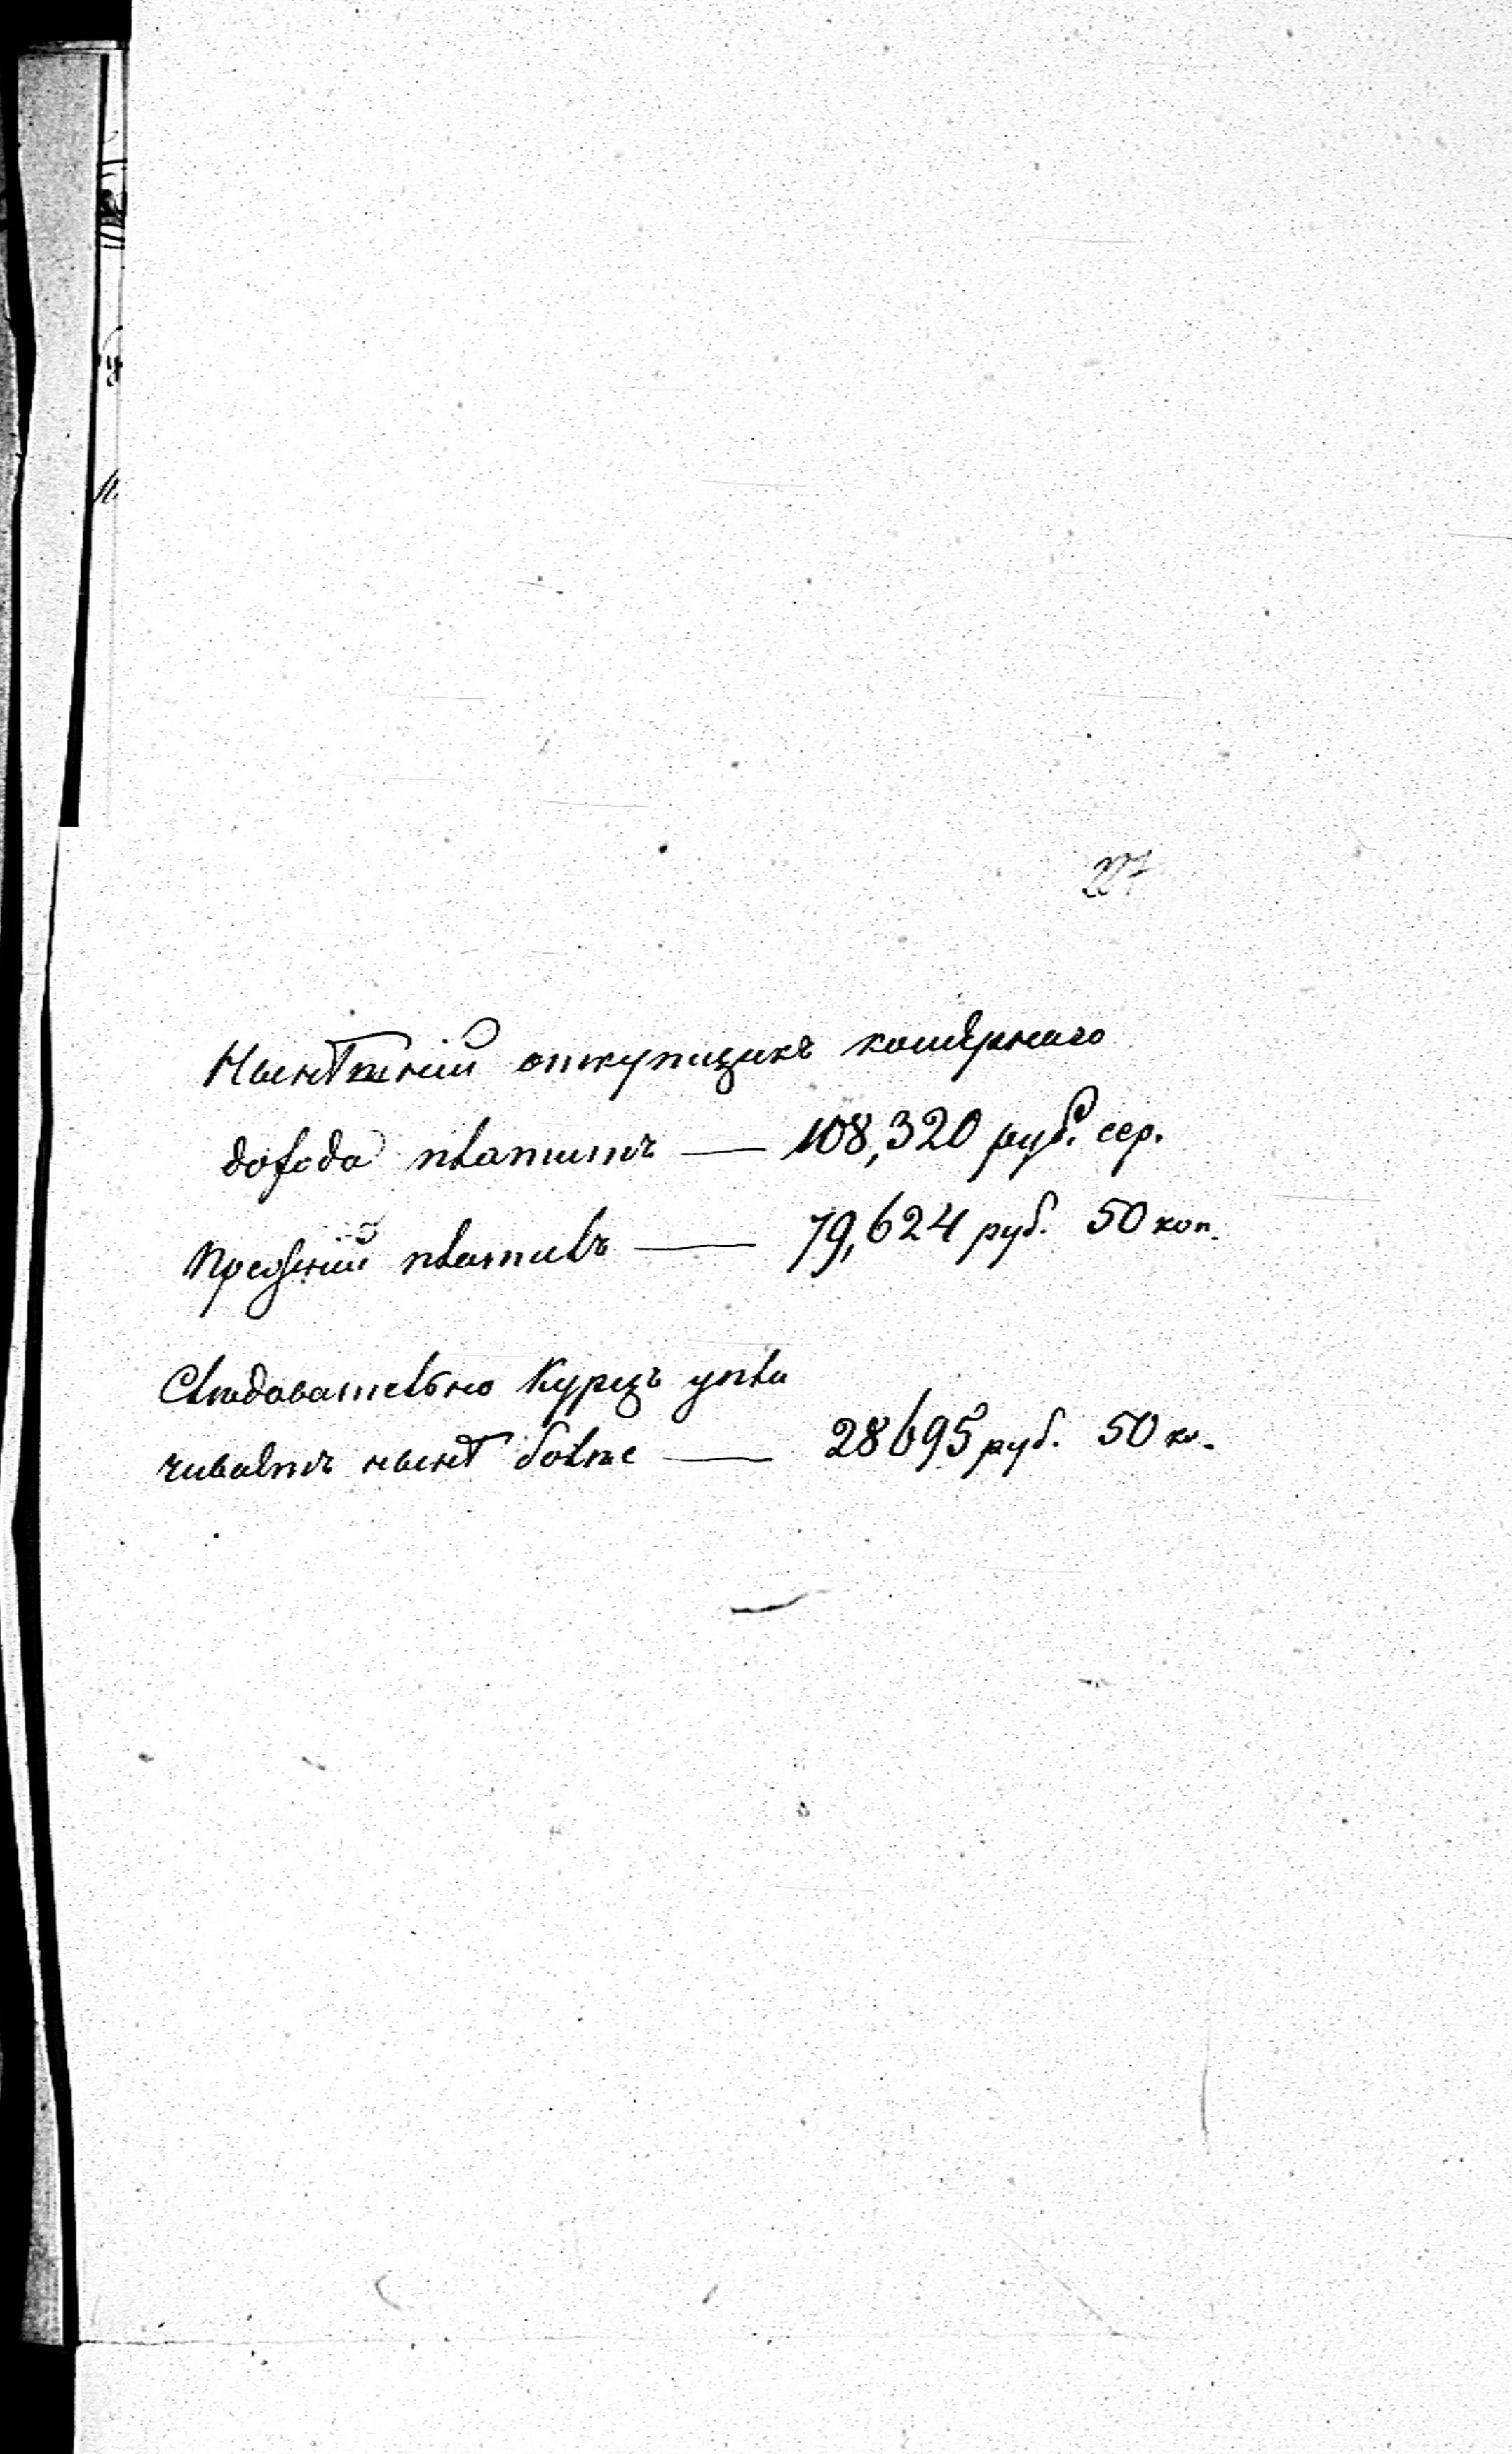 227
Нынѣшній откупщикъ кошернаго
дохода платитъ — 108,320 руб. сер.
Прежній платилъ — 79,624 руб. 50 коп.
Слѣдовательно Курцъ упла
чиваетъ нынѣ болѣе — 28695 руб. 50 к.